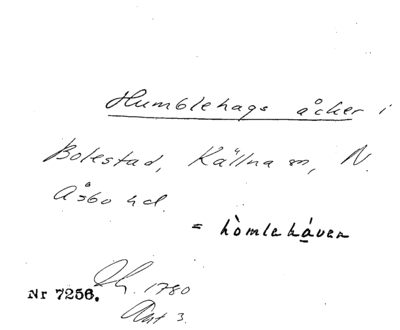 Humblehags åcker i
Bolestad, Källna sn, N.
Åsbo hd.
= hòmleháven
Nr 7256. Sk. 1780
Akt 3.